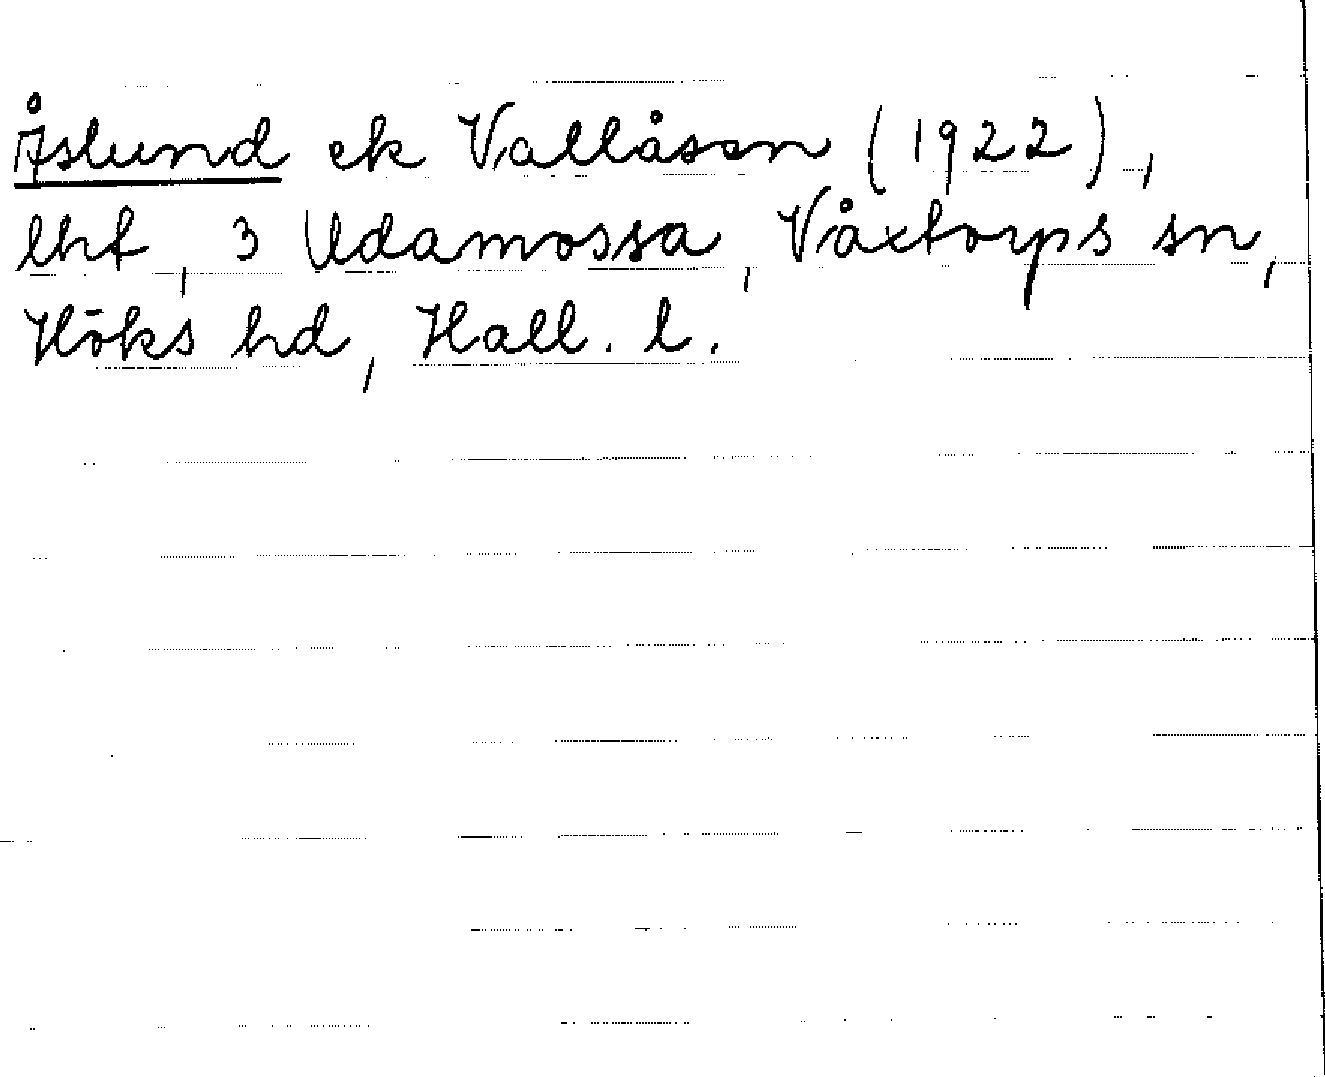 Åslund ek Vallåsen (1922),
lht, 3 Udamossa, Våxtorps sn,
Höks hd, Hall. l.